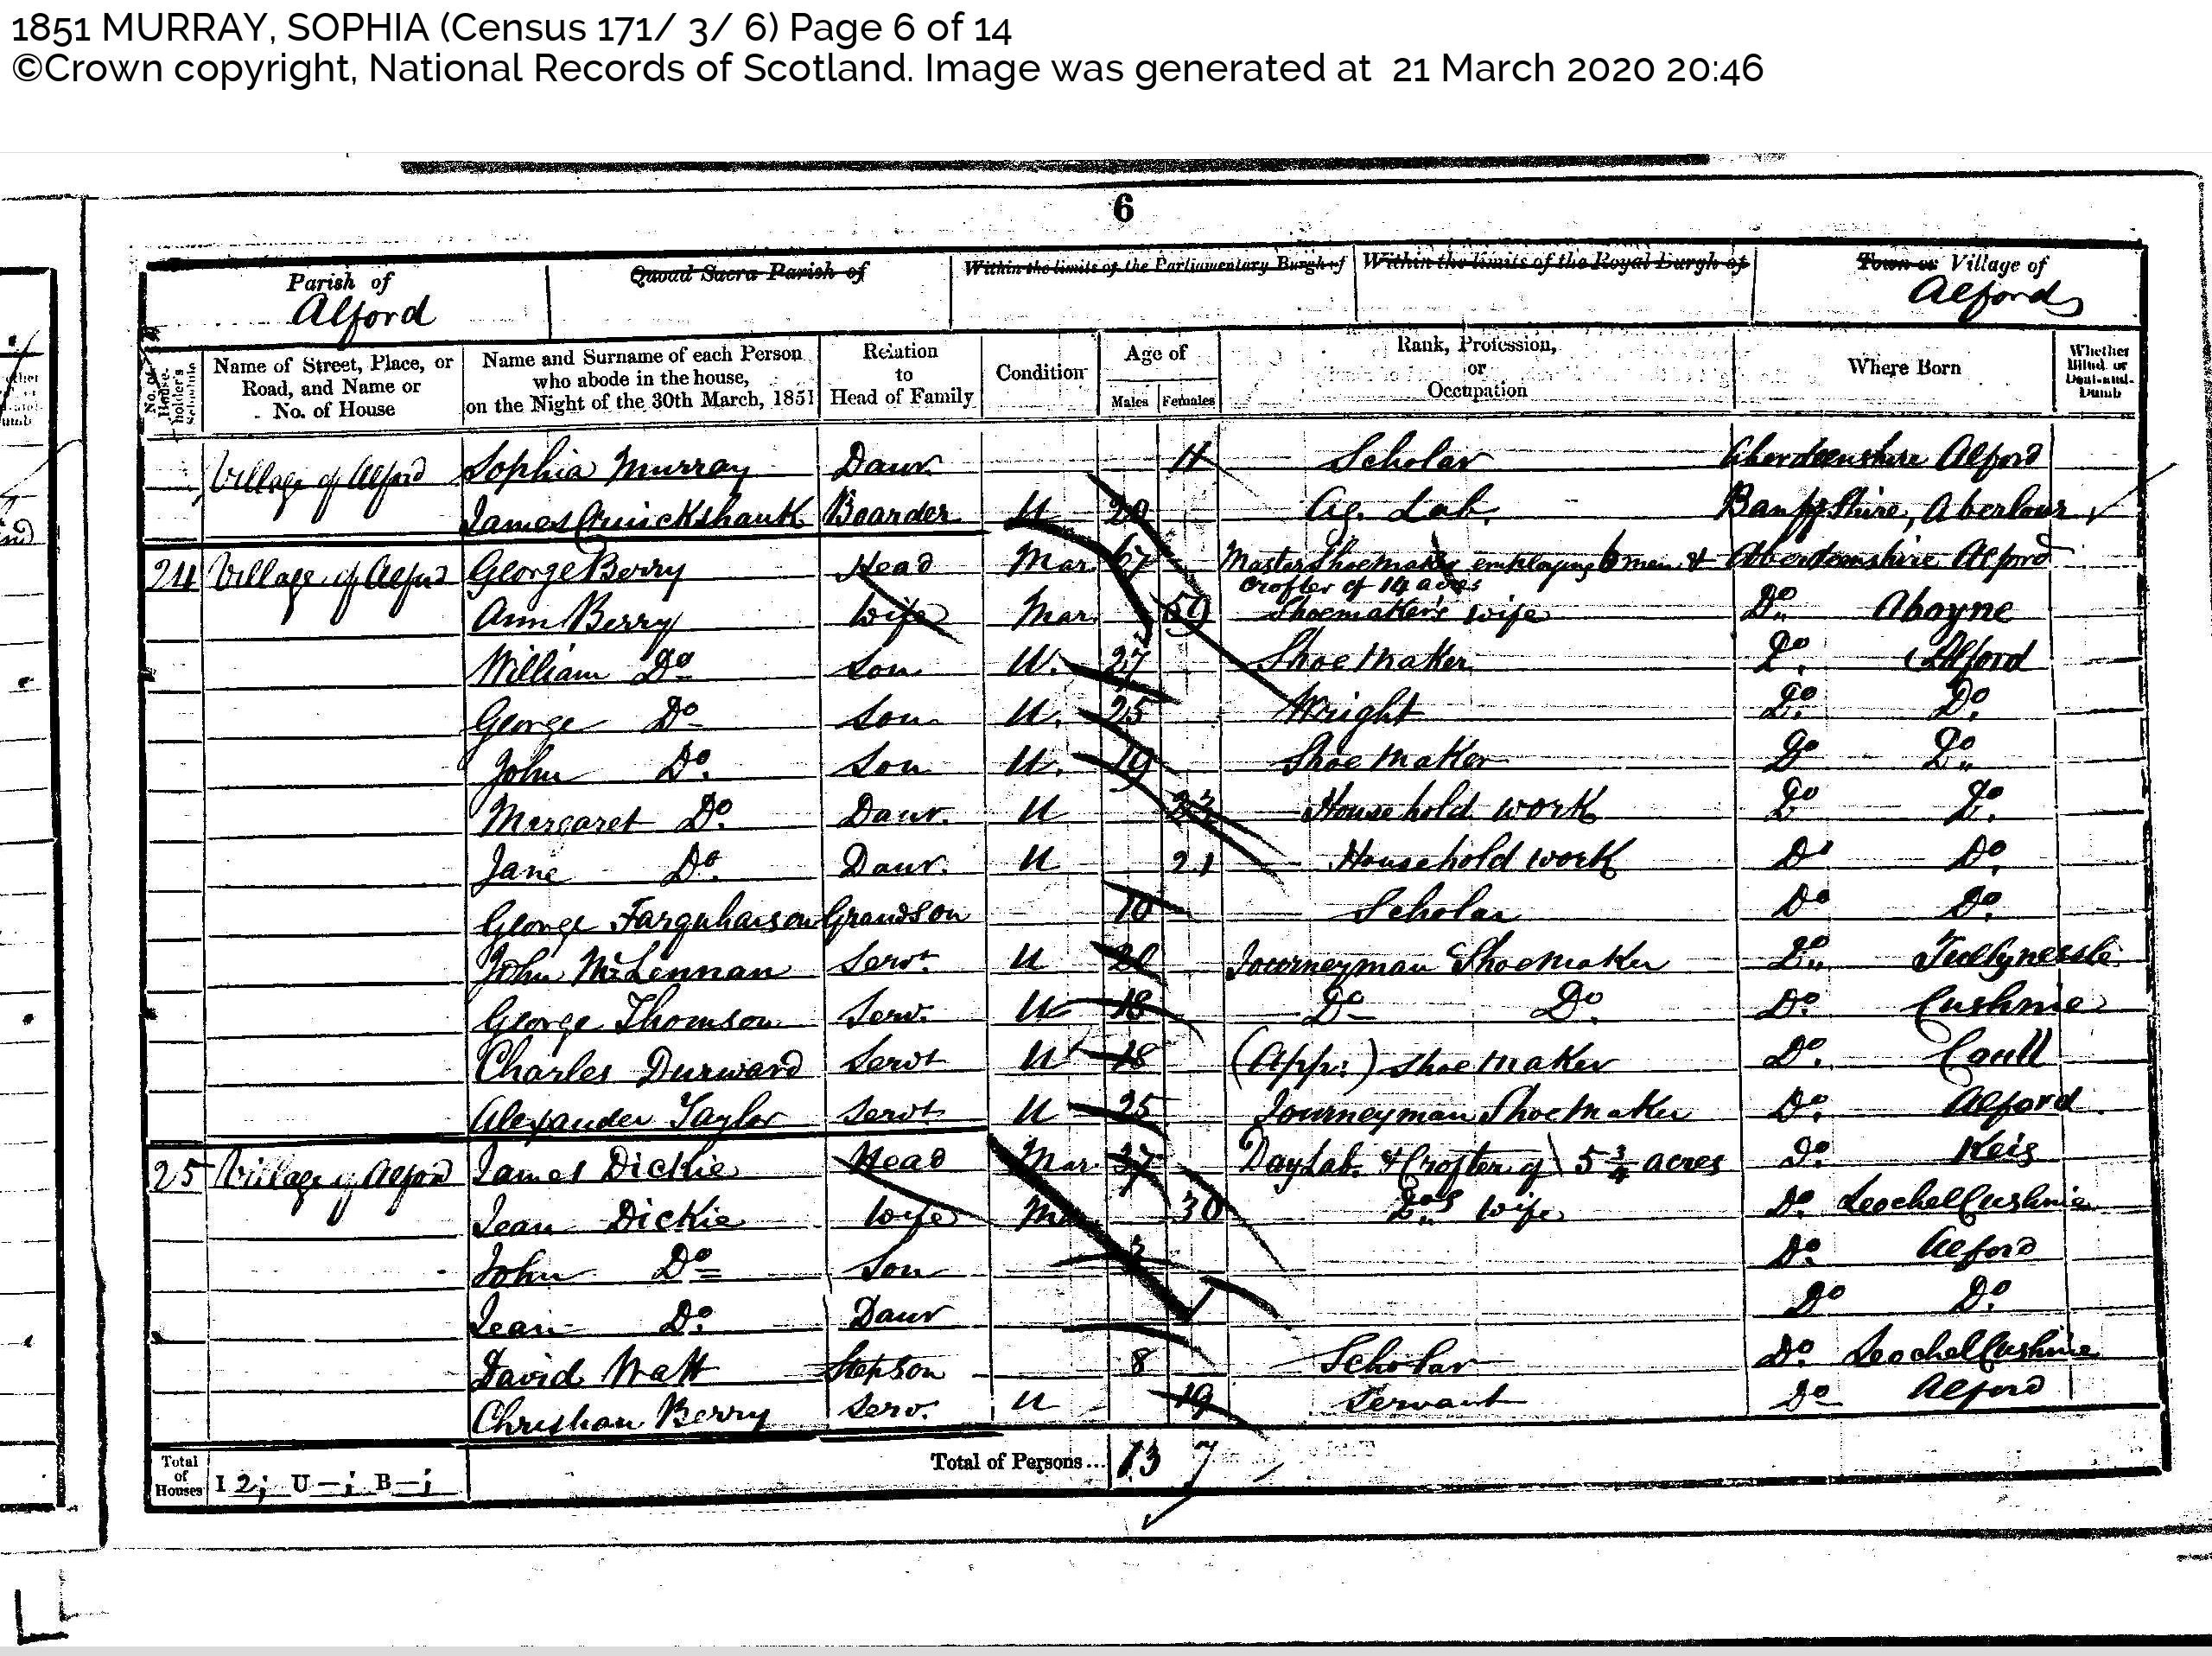 1851 MURRAY, SOPHIA (Census 171/ 3/ 6) Page 6 of 14
©Crown copyright, National Records of Scotland. Image was generated at 21 March 2020 20:46
6
Parish of Quoad Sacra Parish of Within the limits of the Parliamentary Burgh of Within the limits of the Royal Burgh of Town or Village of
Alford Alford
No. of House-holder's Schedule Name of Street, Place, or Road, and Name or No. of House Name and Surname of each Person who abode in the house, on the Night of the 30th March, 1851 Relation to Head of Family Condition Age of Males Females Rank, Profession, or Occupation Where Born Whether Blind, or Deaf-and-Dumb
Village of Alford Sophia Murray Daur. 11 Scholar Aberdeenshire Alford
James Cruickshank Boarder U 20 Ag. Lab. Banffshire, Aberlour
24 Village of Alford George Berry Head Mar. 67 Master Shoemaker employing 6 men & Aberdeenshire Alford
crofter of 14 acres
Ann Berry Wife Mar. 59 Shoemaker's wife Do. Aboyne
William Do. Son U. 27 Shoemaker Do. Alford
George Do. Son U. 25 Wright Do. Do.
John Do. Son U. 19 Shoemaker Do Do.
Margaret Do. Daur. U 23 Household work Do Do.
Jane Do. Daur. U 21 Household work Do Do.
George Farquharson Grandson 10 Scholar Do Do.
John McLennan Servt. U Journeyman Shoemaker Do. Tullynessle
George Thomson Serv. U 18 Do. Do. Do. Cushnie
Charles Durward Servt U 18 (App.) Shoemaker Do. Coull
Alexander Taylor Servt. U 25 Journeyman Shoemaker Do. Alford
25 Village of Alford James Dickie Head Mar. 37 Day Lab. & Crofter of 5 3/4 acres Do. Keig
Jean Dickie Wife Mar 30 Do.s wife Do. Leochel Cushnie
John Do. Son Do. Alford
Jean Do. Daur 1 Do Do.
David Watt Stepson 8 Scholar Do. Leochel Cushnie
Christian Berry Serv. U 19 Servant Do Alford
Total of Houses I 2; U —; B —; Total of Persons... 13 7